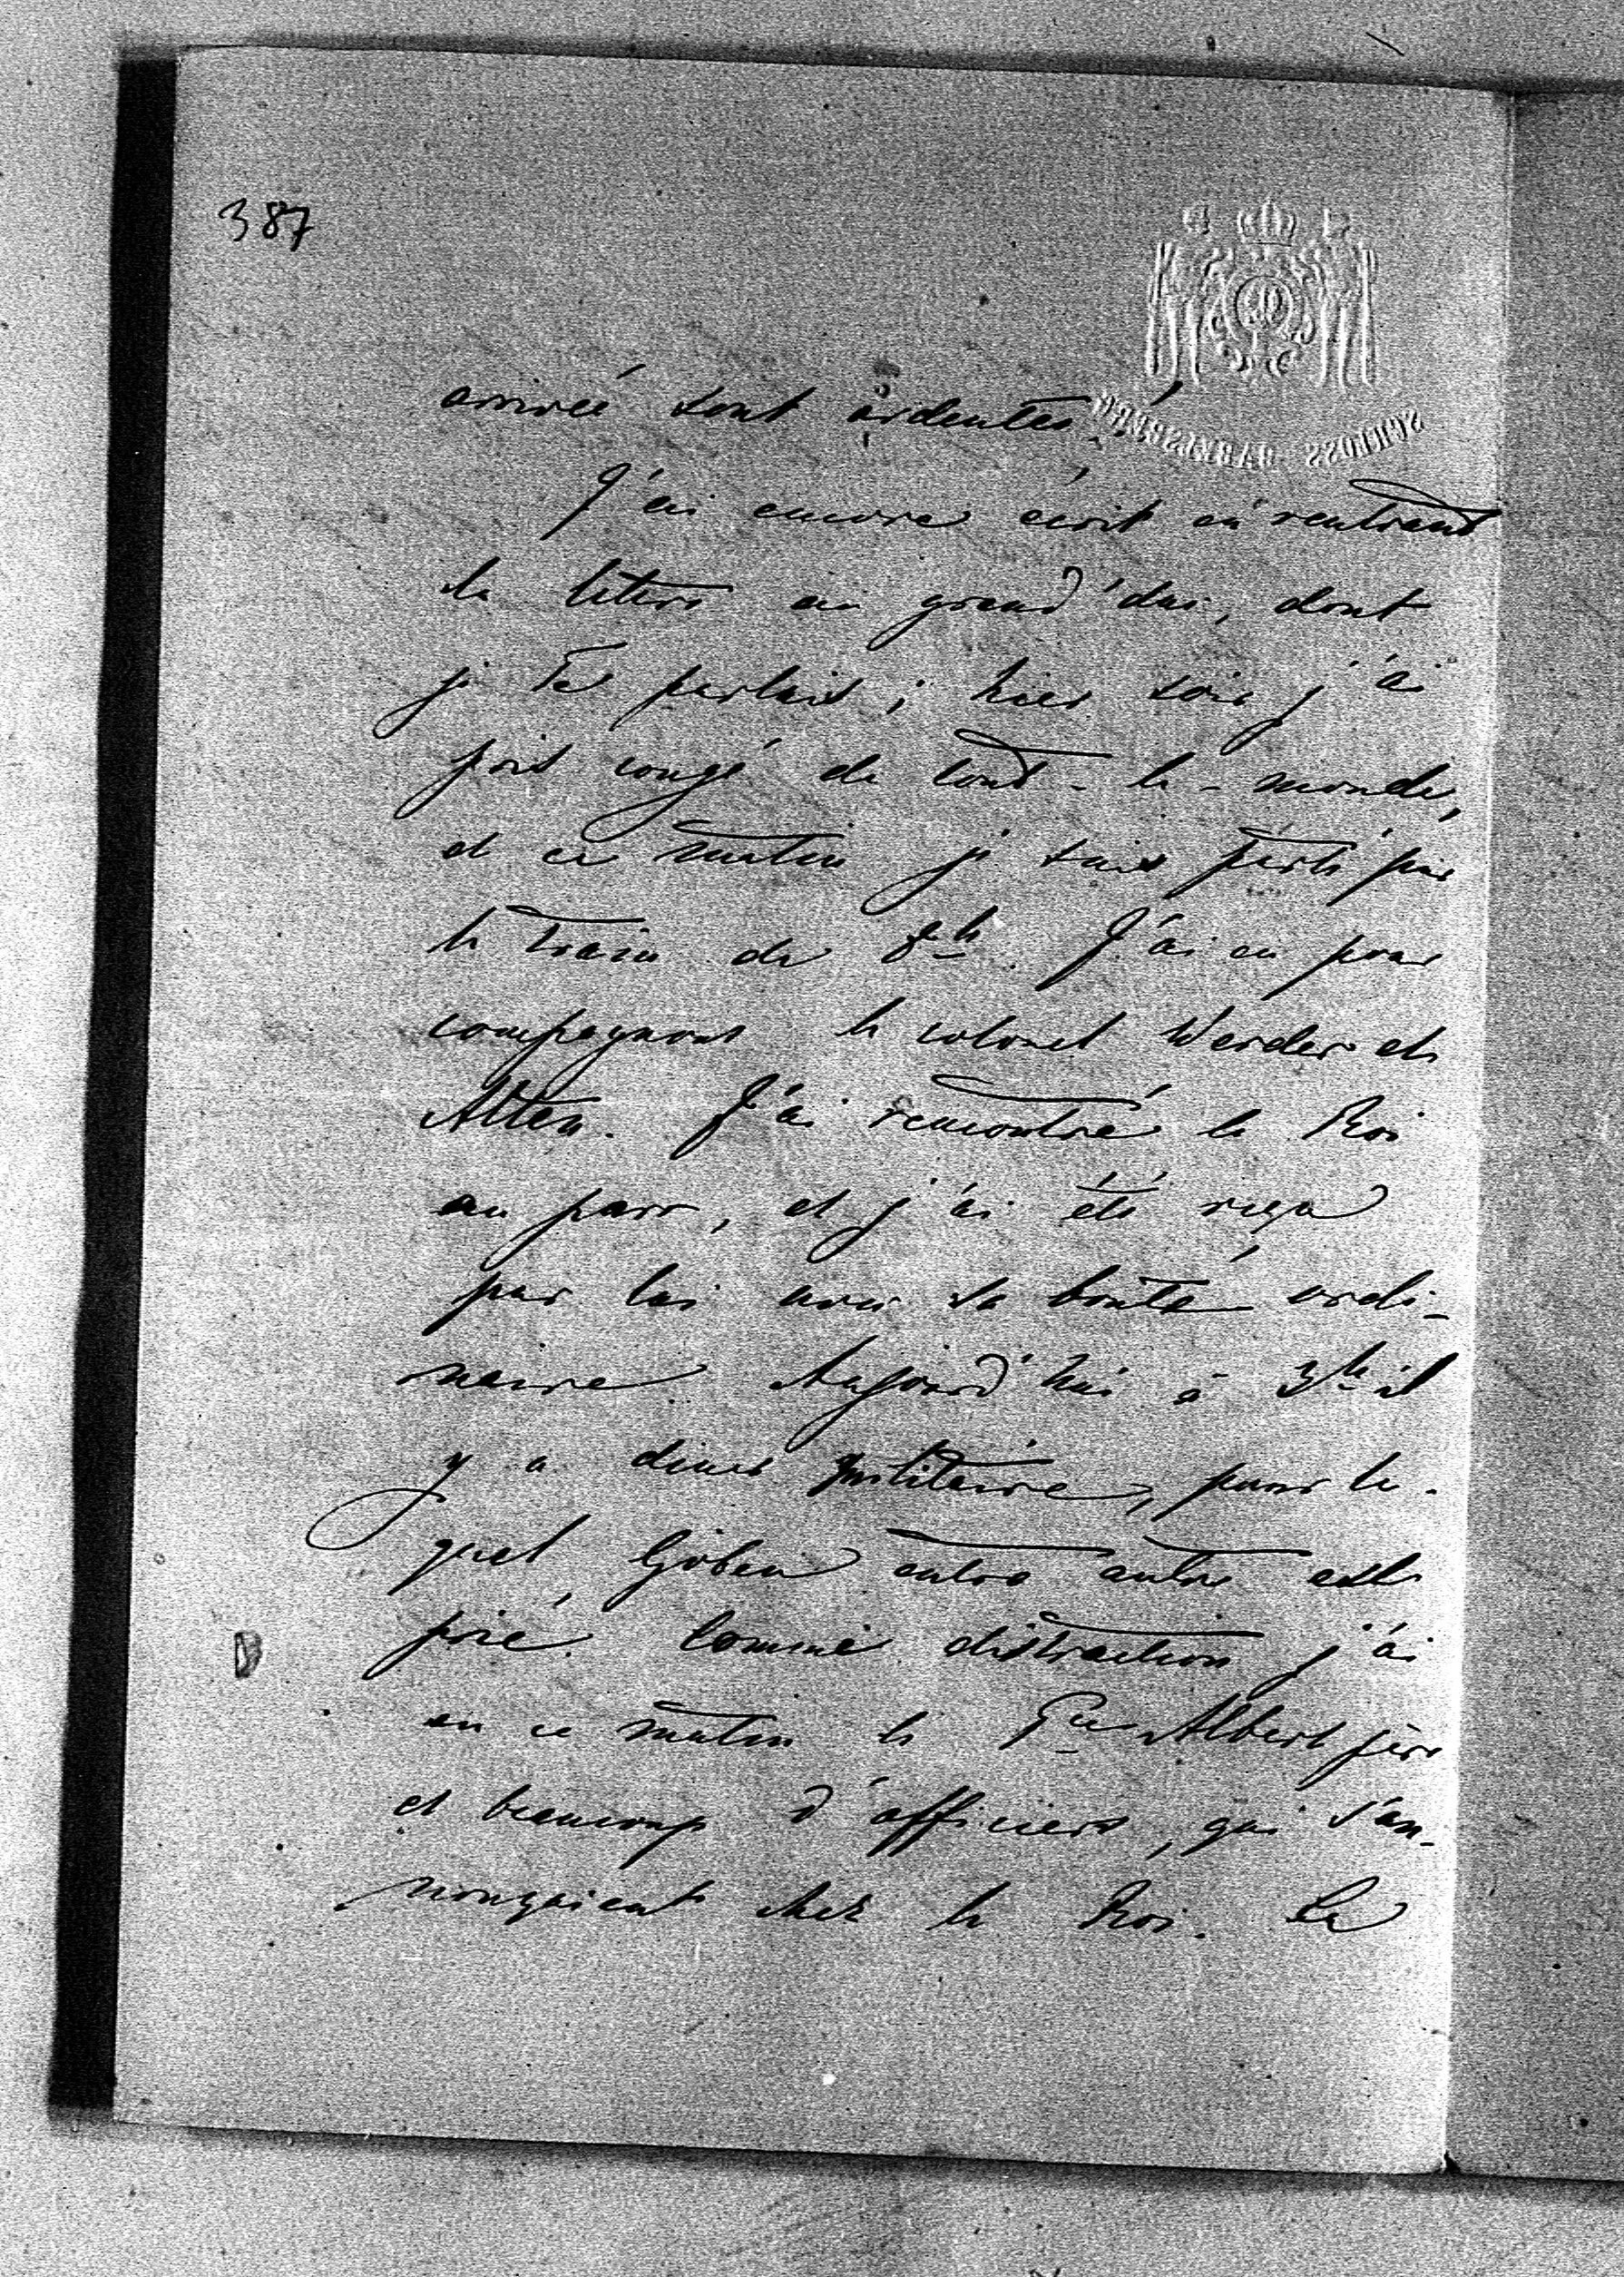 387
SCHLOSS BABELSBERG
arrivée sont ardentes!
J'ai encore écrit en rentrant
la lettre au grand'duc, dont
je te parlais; hier soir j'ai
pris congé de tout-le-monde,
et ce matin je suis parti par
le train de 8h. J'ai eu pour
compagnons le colonel Werder et
Alten. J'ai rencontré le Roi
au parc, et j'ai été reçu
par lui avec sa bonté ordi-
naire. Aujourd'hui à 3h il
y a diner militaire, pour le-
quel Göben entre autre est
prié. Comme distraction j'ai
eu ce matin le Pce Albert père
et beaucoup d'officiers, qui s'an-
nonçaient chez le Roi. Le